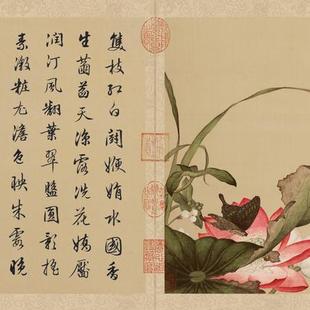 雙枝紅白鬪㛹娟水國香
生菡萏天涼露洗花嬌靨
潤汀風翻葉翠盤圓影搖
素瀲粧尤澹色映朱霞晚